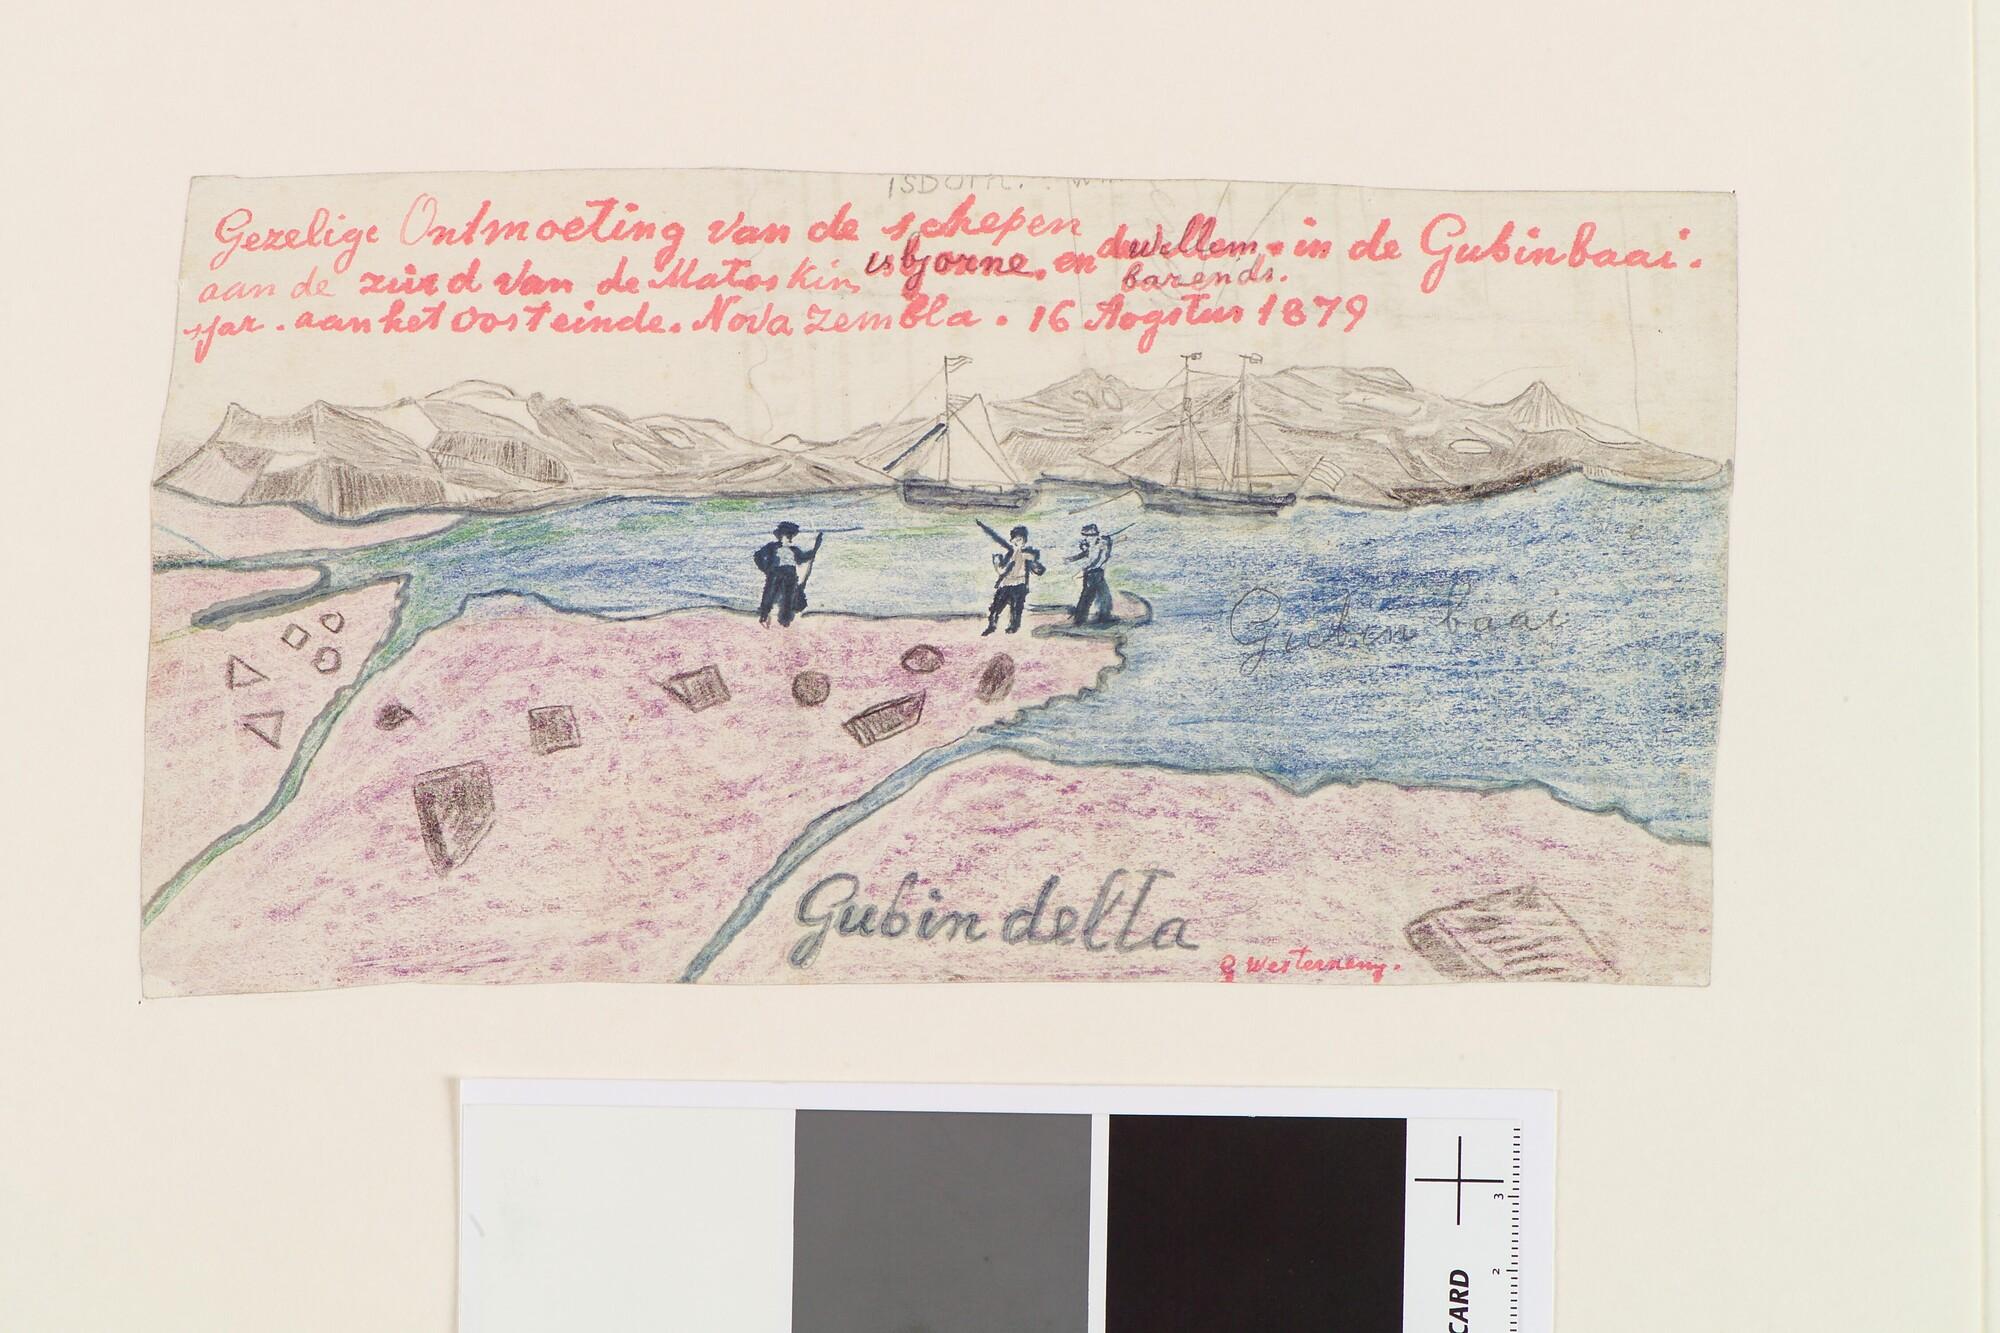 Gezelige Ontmoeting van de schepen
isbjorne. en de willem. in de Gubinbaai.
barends.
aan de zuid van de Matoskin
sjar. aan het oosteinde. Nova zembla. 16 Aogstus 1879
Gubin baai
Gubin delta
CARD
2
3